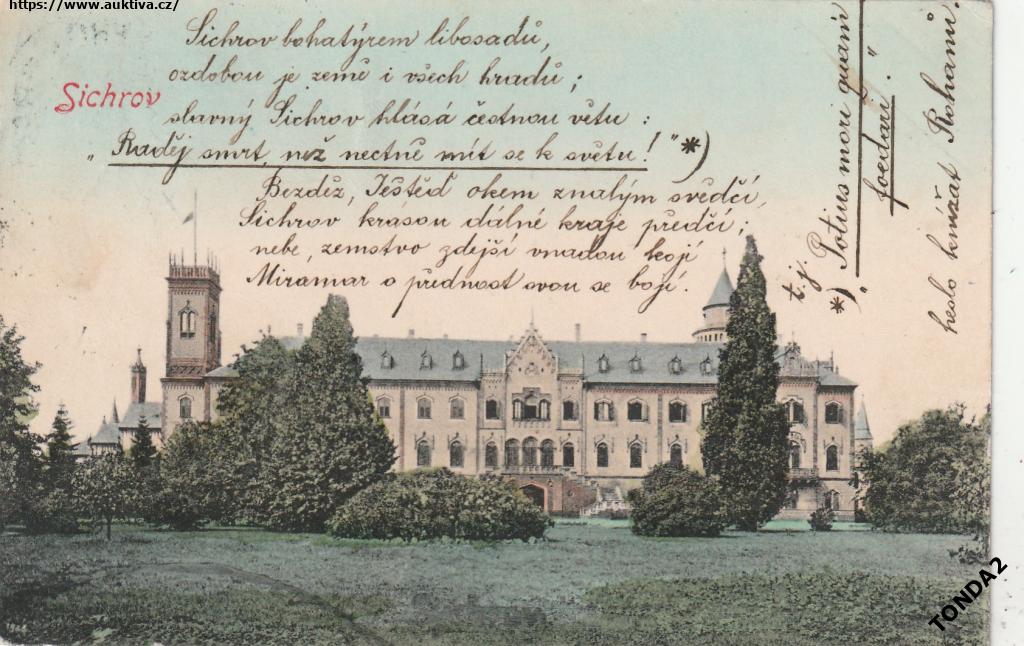 https://www.auktiva.cz/
Sichrov
Sichrov bohatýrem libosadů,
ozdobou je země i všech hradů;
slavný Sichrov hlásá čestnou větu:
„Raděj smrt, než nectně mít se k světu!" *)
Bezděz, Ještěd okem znalým svědčí,
Sichrov krásou dálné kraje předčí;
nebe, zemstvo zdejší vnadou kojí
Miramar o přednost svou se bojí.
*) t.j. „Potius mori quam
foedari."
heslo knížat Rohanů.
TONDA2